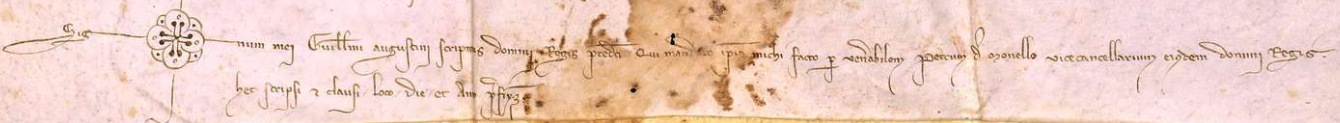 Sig num mei Guillmi augustini scriptoris domini Regis predci Qui mand ipius michi facto p venabilem Petrum d Monello vicecancellarium eiusdem domini Regis.
hec scripsi & clausi loco die et anno pfixis